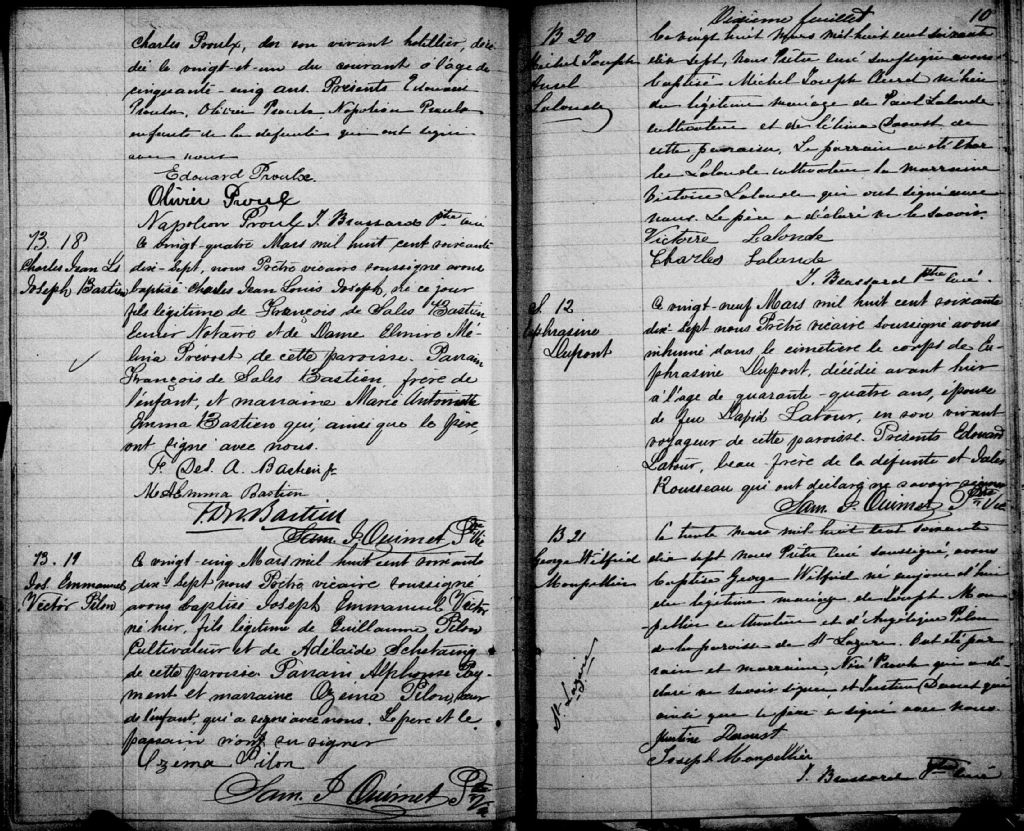 Charles Proulx, de son vivant hotellier, décé
dé le vingt-et-un du courant à l'âge de
cinquante-cinq ans. Présents Edouard
Proulx, Olivier Proulx, Napoléon Proulx
enfants de la défunte qui ont signé
avec nous
Edouard Proulx.
Olivier Proulx
Napoléon Proulx J. Brassard Ptre curé
B. 18
Charles Jean Ls
Joseph Bastien
Ce vingt-quatre Mars mil huit cent soixante
dix-sept, nous Prêtre vicaire soussigné avons
baptisé Charles Jean Louis Joseph, né ce jour
fils légitime de François de Sales Bastien
Ecuier Notaire et de Dame Elmire Mé-
lina Prevost de cette paroisse. Parrain
François de Sales Bastien, frère de
l'enfant, et marraine Marie Antoinette
Emma Bastien qui, ainsi que le père,
ont signé avec nous.
F. Des. A. Bastien jr
M. A. Emma Bastien
F. D. S. Bastien
Sam. J. Ouimet Ptre Vic
B. 19
Jos. Emmanuel
Victor Pilon
Ce vingt-cinq Mars mil huit cent soixante
dix-sept nous Prêtre vicaire soussigné
avons baptisé Joseph Emmanuel Victor
né hier, fils légitime de Guillaume Pilon
Cultivateur et de Adélaïde
de cette paroisse Parrain Alphonse Pay-
ment et marraine Ozéma Pilon, sœur
de l'enfant, qui a signé avec nous. Le père et le
parrain n'ont su signer
Ozema Pilon
Sam. J. Ouimet Ptre Vic
Dixième feuillet
10
B 20
Michel Joseph
Aurel
Lalonde
Ce vingt huit mars mil huit cent soixante
dix sept, Nous Prêtre curé soussigné avons
baptisé Michel Joseph Aurel né hier
du légitime mariage de Paul Lalonde
cultivateur et de Célina Daoust de
cette paroisse. Le parrain a été Char
les Lalonde cultivateur la marraine
Victoire Lalonde qui ont signé avec
nous. Le père a déclaré ne le savoir.
Victoire Lalonde
Charles Lalonde
J. Brassard Ptre Curé.
S. 12
Euphrasine
Dupont
Ce vingt-neuf Mars mil huit cent soixante
dix-sept nous Prêtre vicaire soussigné avons
inhumé dans le cimetière le corps de Eu-
phrasine Dupont, décédée avant hier
à l'age de quarante-quatre ans, épouse
de feu David Latour, en son vivant
voyageur de cette paroisse. Présents Edouard
Latour, beau-frère de la défunte et Jules
Rousseau qui ont déclaré ne savoir signer
Sam. J. Ouimet Ptre Vic
B 21
George Wilfrid
Monpellier
St. Lazare
Le trente mars mil huit cent soixante
dix sept nous Prêtre Curé soussigné, avons
baptisé George Wilfrid né aujourd'hui
du légitime mariage de Joseph Mon
pellier cultivateur et d'Angélique Pilon
de la paroisse de St Lazare. Ont été par
rain et marraine Proulx qui a dé
claré ne savoir signer, et Justine Daoust qui
ainsi que le père a signé avec nous.
Justine Daoust
Joseph Monpellier
J. Brassard Ptre Curé